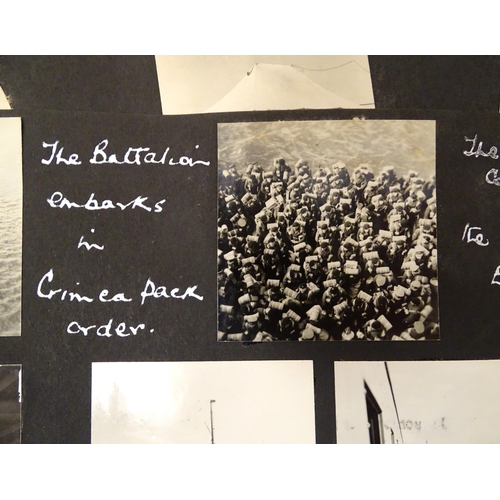 The Battalion
embarks
in
Crimea pack
order.
The
the